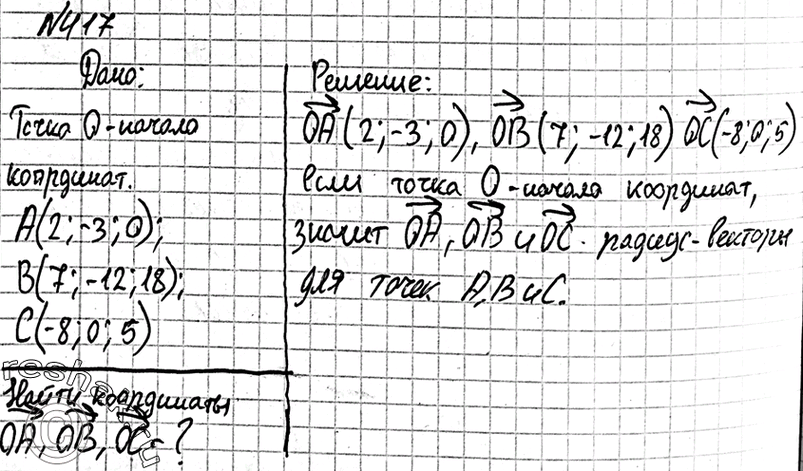 №417
Дано:
Точка О-начало
координат.
A(2;-3;0);
B(7;-12;18);
C(-8;0;5)
Найти координаты
OA, OB, OC-?
Решение:
OA(2;-3;0), OB(7;-12;18) OC(-8;0;5)
если точка О-начало координат,
значит OA, OB и OC - радиус-векторы
для точек A, B и C.
reshak.ru